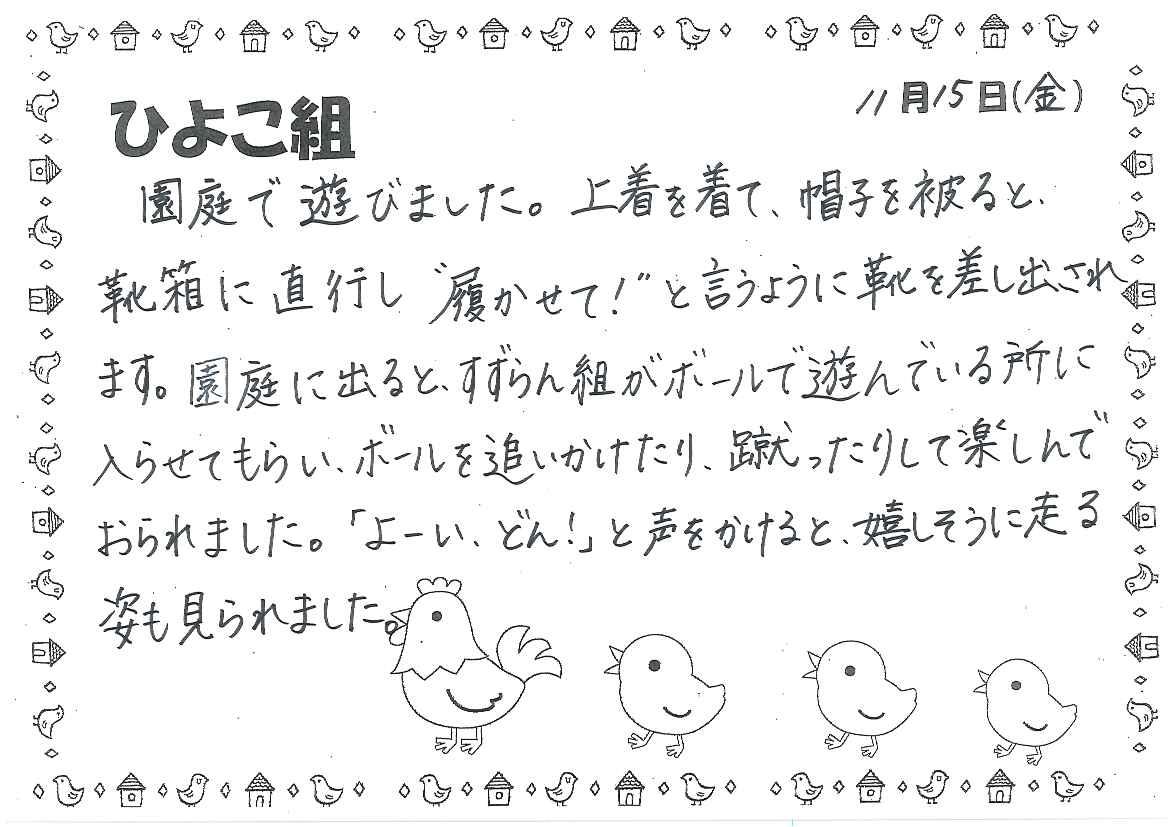 11月15日(金)
ひよこ組
園庭で遊びました。上着を着て、帽子を被ると、
靴箱に直行し"履かせて!"と言うように靴を差し出され
ます。園庭に出ると、すずらん組がボールで遊んでいる所に
入らせてもらい、ボールを追いかけたり、蹴ったりして楽しんで
おられました。「よーい、どん!」と声をかけると、嬉しそうに走る
姿も見られました。